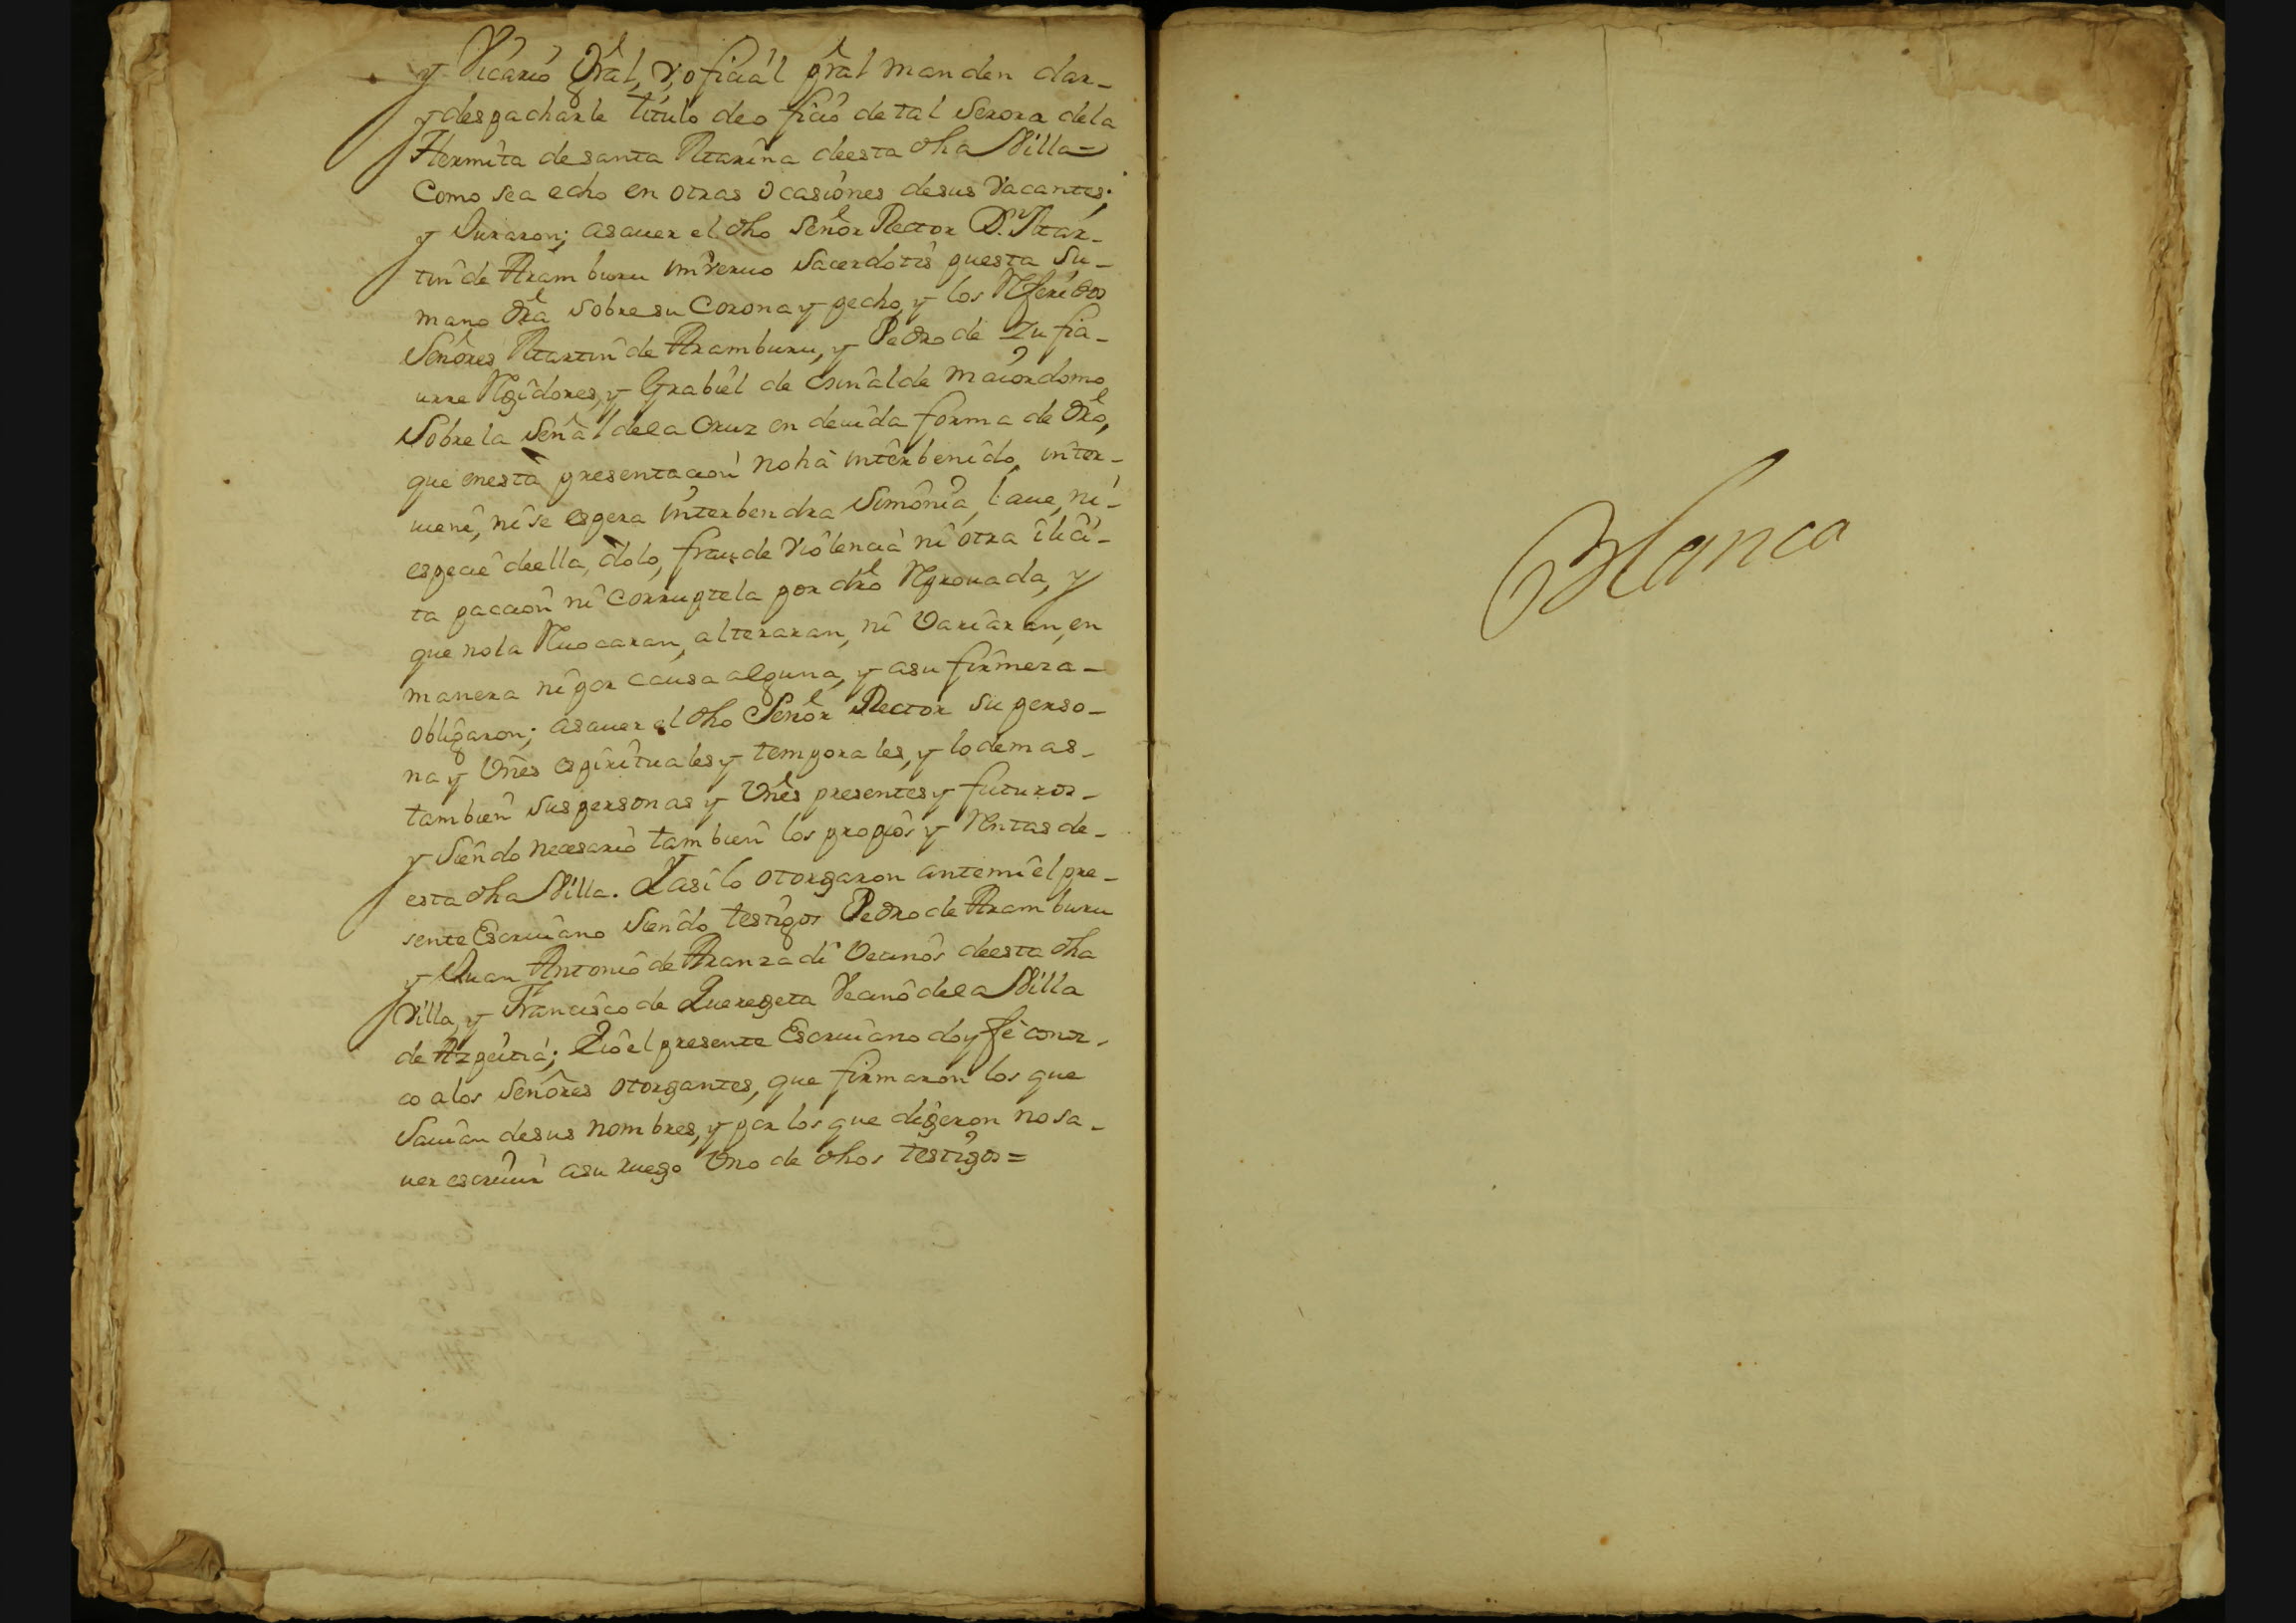 y Vicario Gral, y oficial gral manden dar-
y despacharle titulo de oficio de tal Serora dela
Hermita de santa Marina deesta dha Villa=
Como sea echo en otras ocasiones desus Vacantes;
y Juraron; asauer el dho Señor Rector D. Mar-
tin de Aramburu in veruo Sacerdotis puesta su-
mano dra sobresu Corona y pecho, y los Referidos
Señores Martin de Aramburu, y Pedro de Zufia-
urre Regidores, y Grabiel de maiordomo
Sobre la Señal dela Cruz en deuida forma de dro,
que enesta presentacion no ha interbenido, inter-
uiene, ni se espera interbendra Simonia, laue, ni-
especie deella, dolo, fraude violencia ni otra ilici-
ta paccion ni Corruptela por dro Reprouada, y
que nola Reuocaran, alteraran, ni Variaran, en
manera ni por causa alguna, y asu firmeza-
obligaron; asauer el dho Señor Rector su perso-
na y Vnes espirituales y temporales, y lo demas-
tambien sus personas y Vnes presentes y futuros-
y Siendo necesario tambien los propios y Rentas de-
esta dha Villa. Y asi lo otorgaron ante mi el pre-
sente Escriuano siendo testigos Pedro de Aramburu
y Juan Antonio de Aranzadi Vecinos deesta dha
Villa, y Francisco de Querexeta Vecino dela Villa
de Azpeitia; E io el presente Escriuano doy fe conoz-
co alos Señores otorgantes, que firmaron los que
Sauian desus nombres, y por los que digeron no sa-
uer escriuir asu ruego Vno de dhos testigos=
Blanca